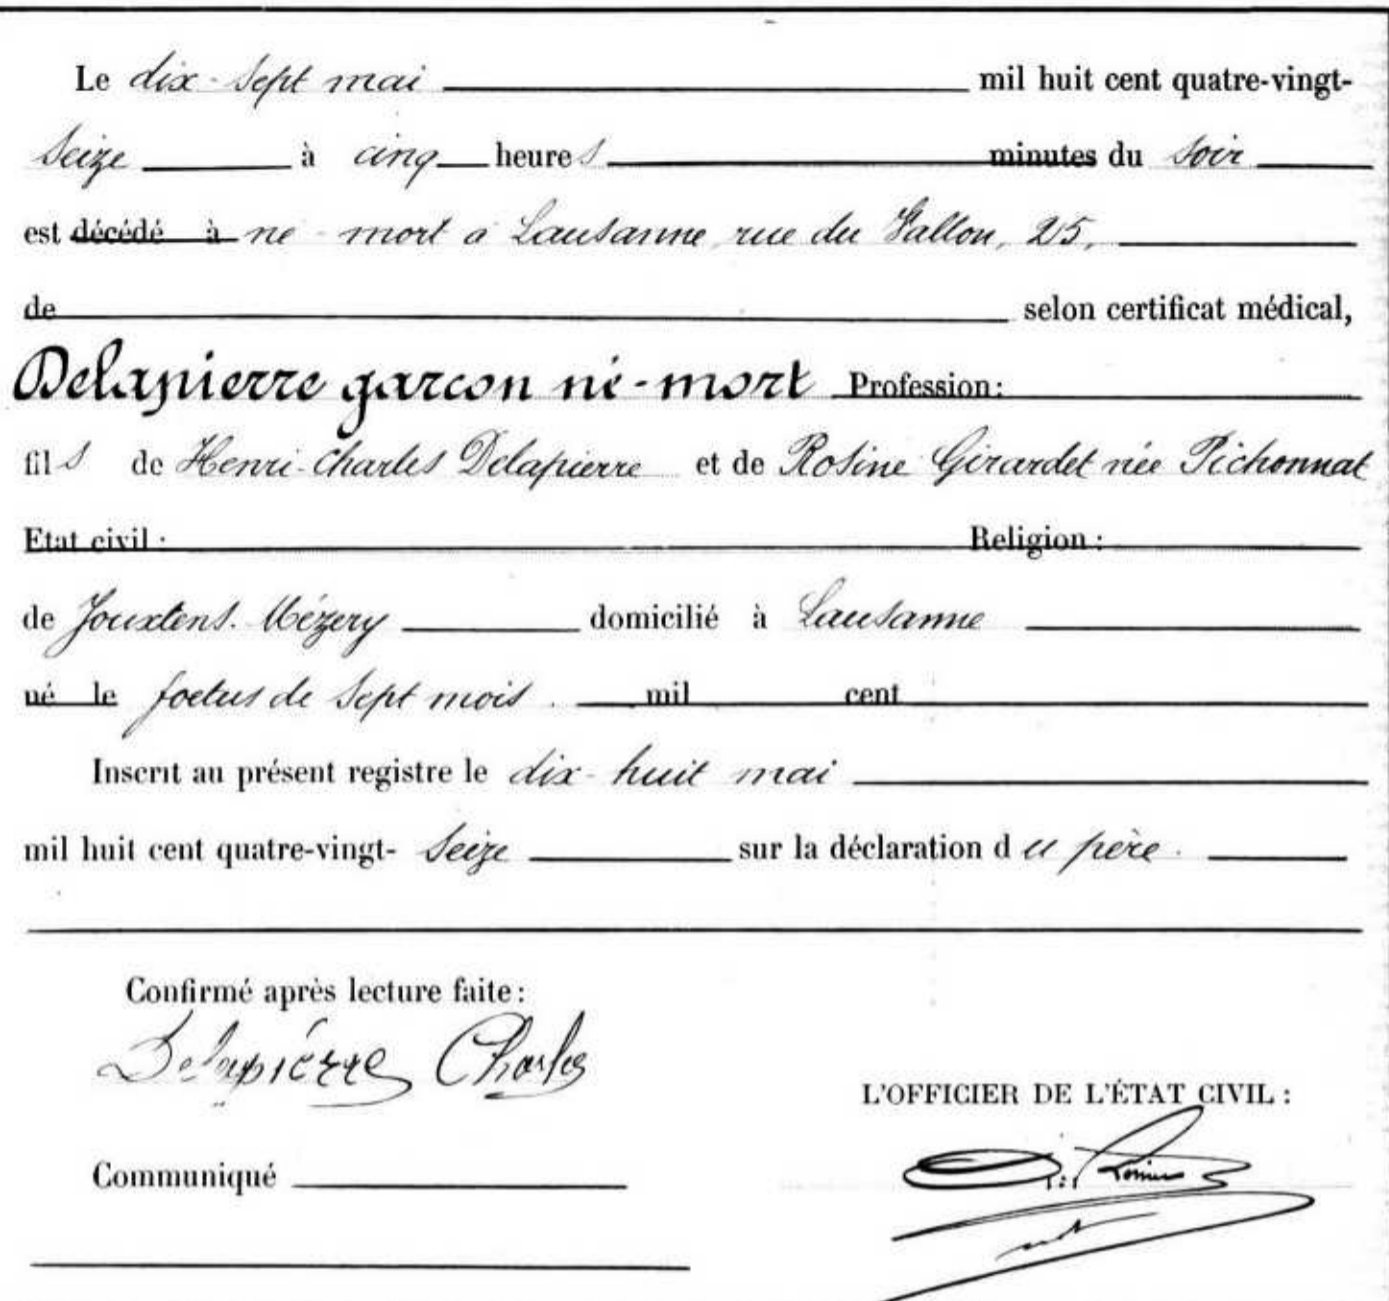 Le dix-sept mai mil huit cent quatre-vingt-
seize à cinq heures minutes du soir
est décédé à né-mort à Lausanne, rue du Vallon, 25,
de selon certificat médical,
Delapierre garcon né-mort Profession:
fils de Henri-Charles Delapierre et de Rosine Girardet née Pichonnat
Etat civil: Religion:
de Jouxtens-Mézery domicilié à Lausanne
né le foetus de sept mois. mil cent
Inscrit au présent registre le dix-huit mai
mil huit cent quatre-vingt-seize sur la déclaration du père.
Confirmé après lecture faite:
Delapierre Charles
L'OFFICIER DE L'ÉTAT CIVIL:
Communiqué